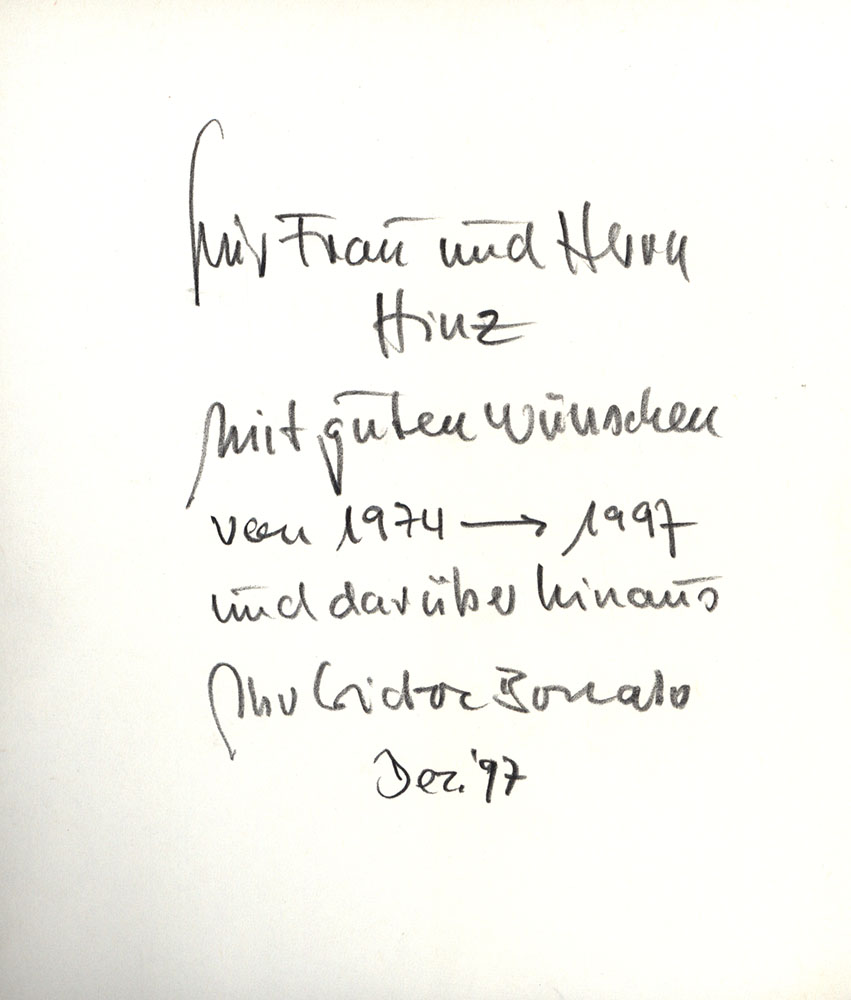 für Frau und Herrn
Hinz
mit guten Wünschen
von 1974 → 1997
und darüber hinaus
Ihr Victor Bonato
Dez. '97